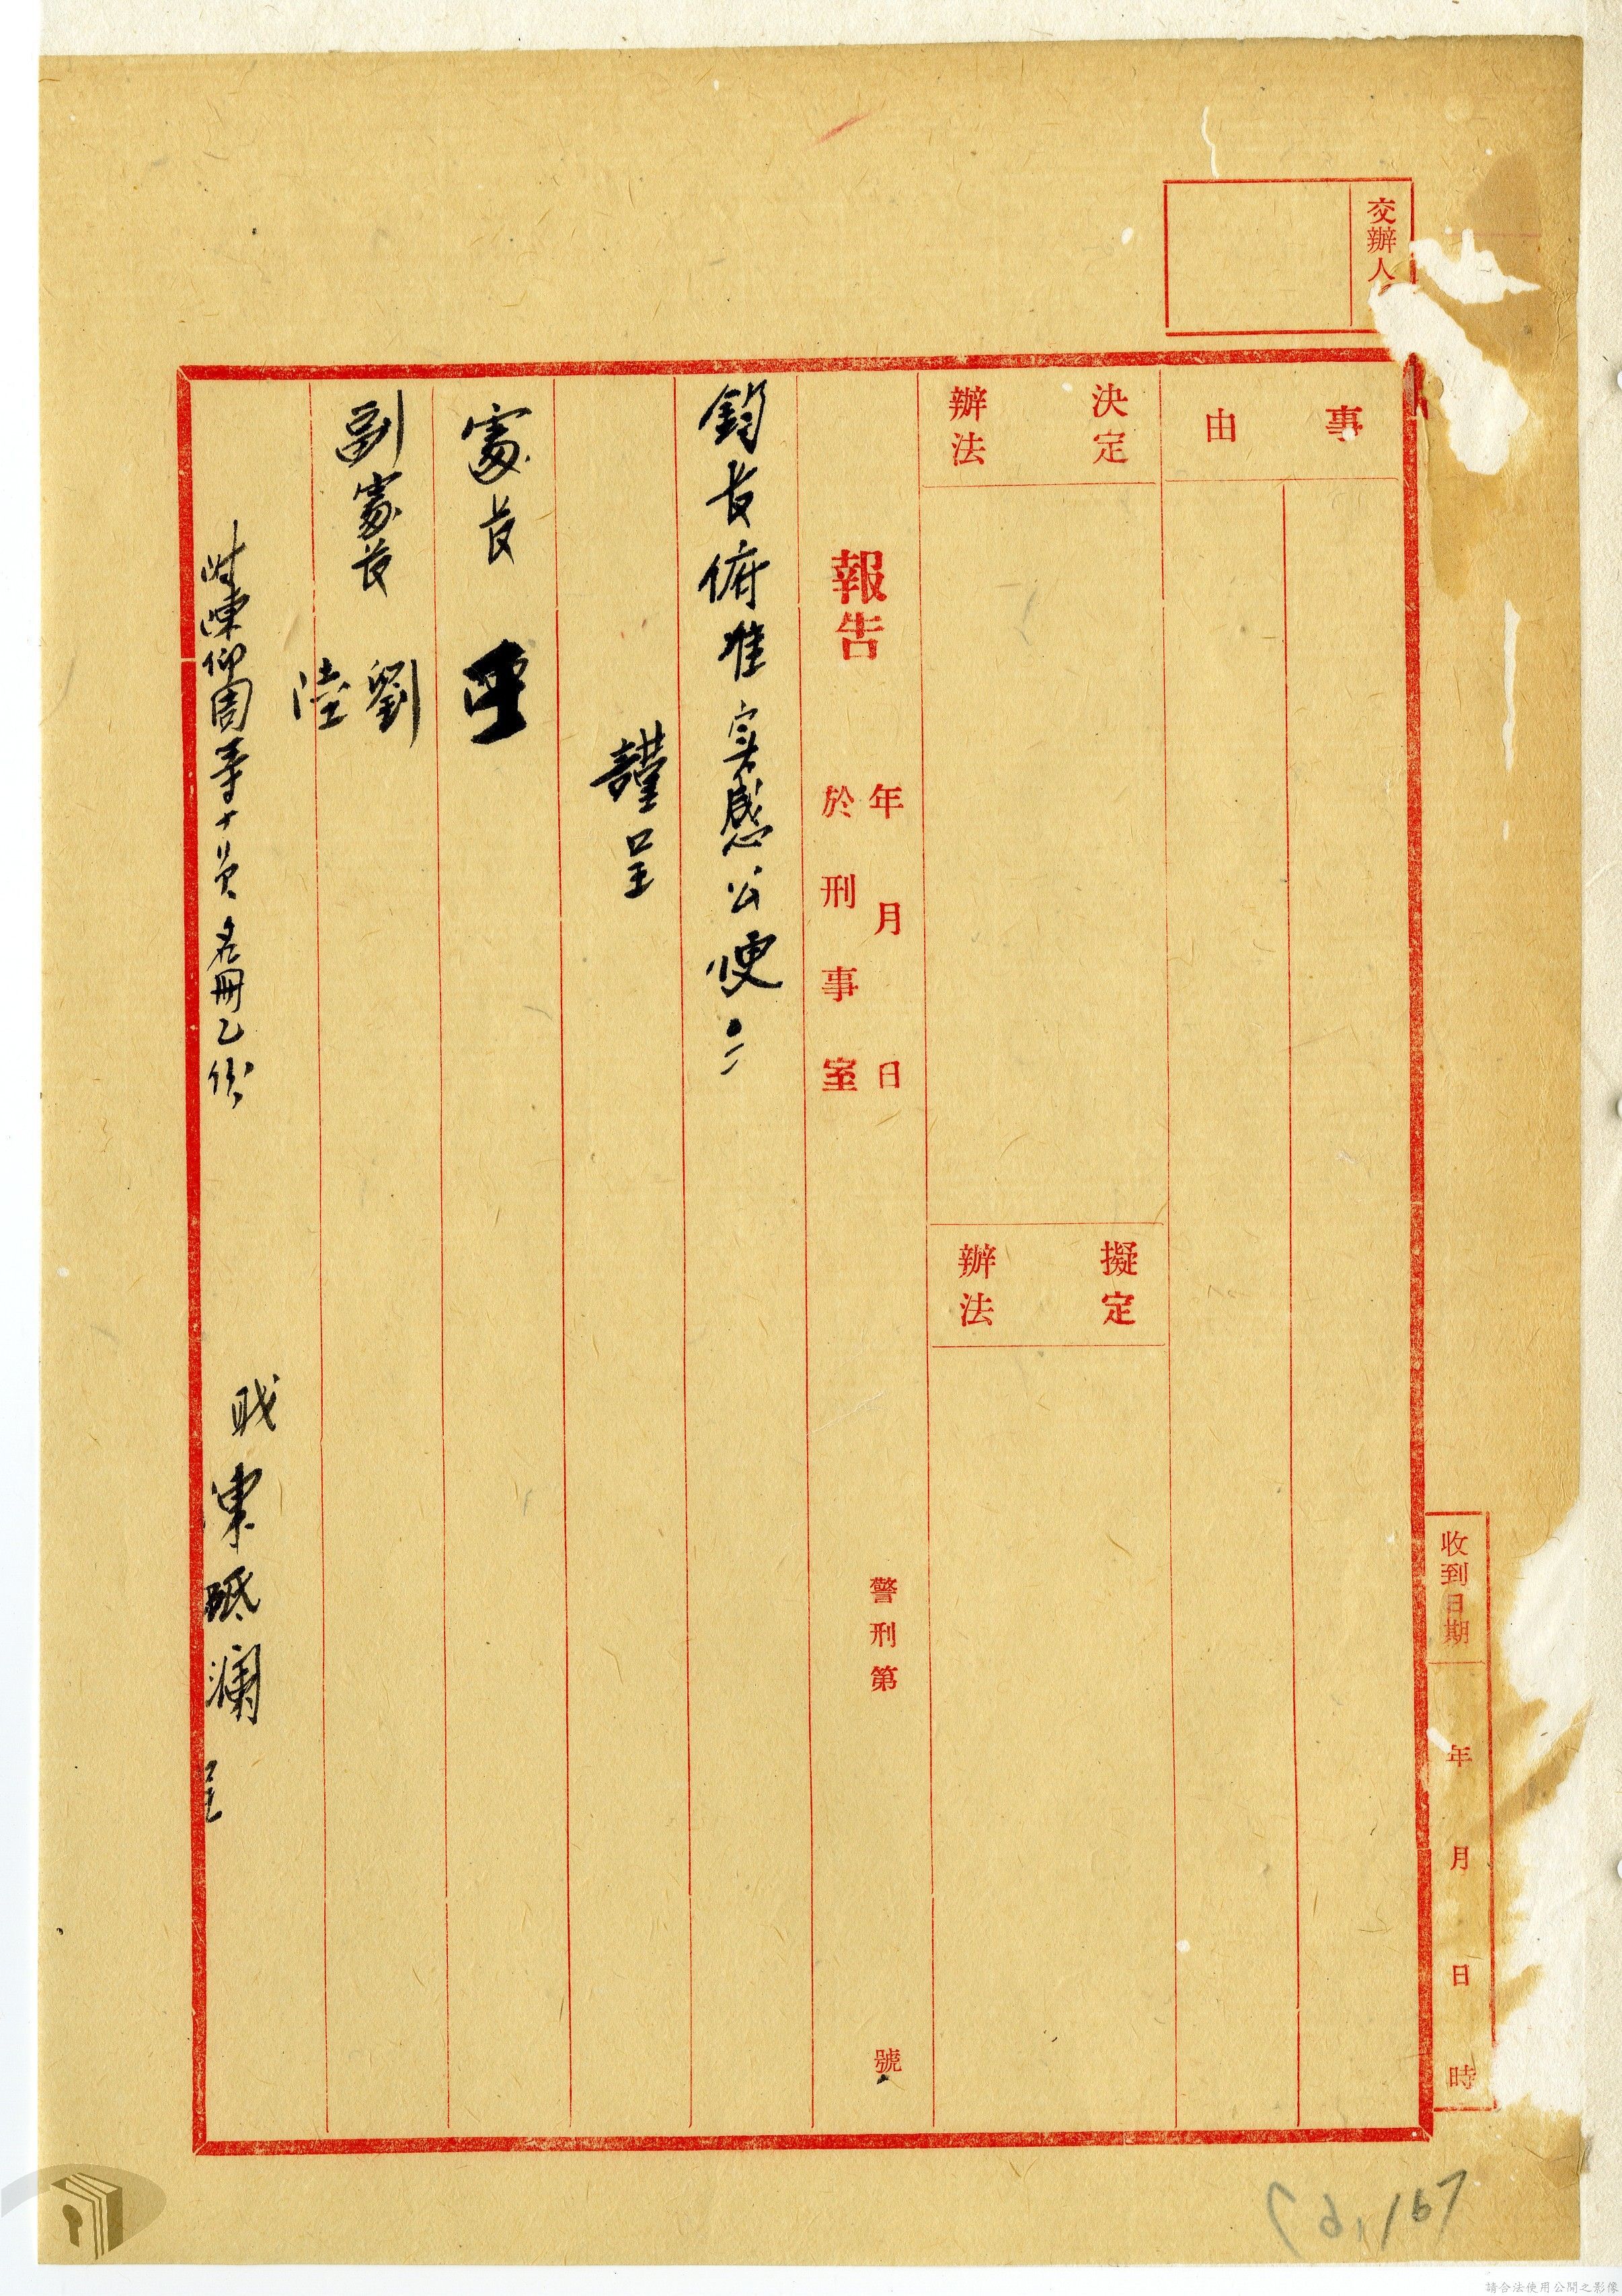 交辦人
事由
決定辦法
擬定辦法
收到日期　年　月　日　時
報告　年　月　日
於刑事室
警刑第　號
鈞長俯准实感公便
謹呈
處長
副處長　劉
陸
附陳仰周等十員名冊乙份
職陳砥瀾呈
167
請合法使用公開之影像